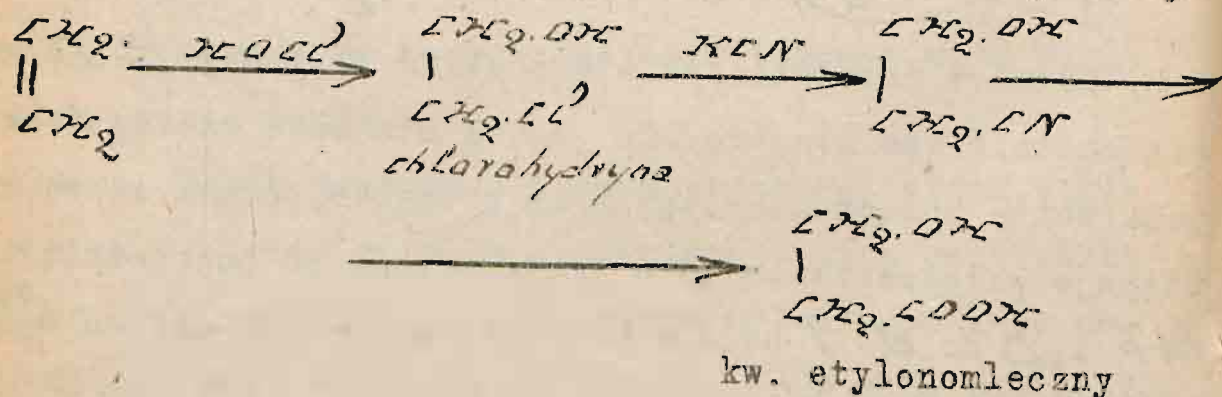 CH2 HOCl CH2.OH KCN CH2.OH
|| | |
CH2 CH2.Cl CH2.CN
chlorohydryna
CH2.OH
|
CH2.COOH
kw. etylonomleczny